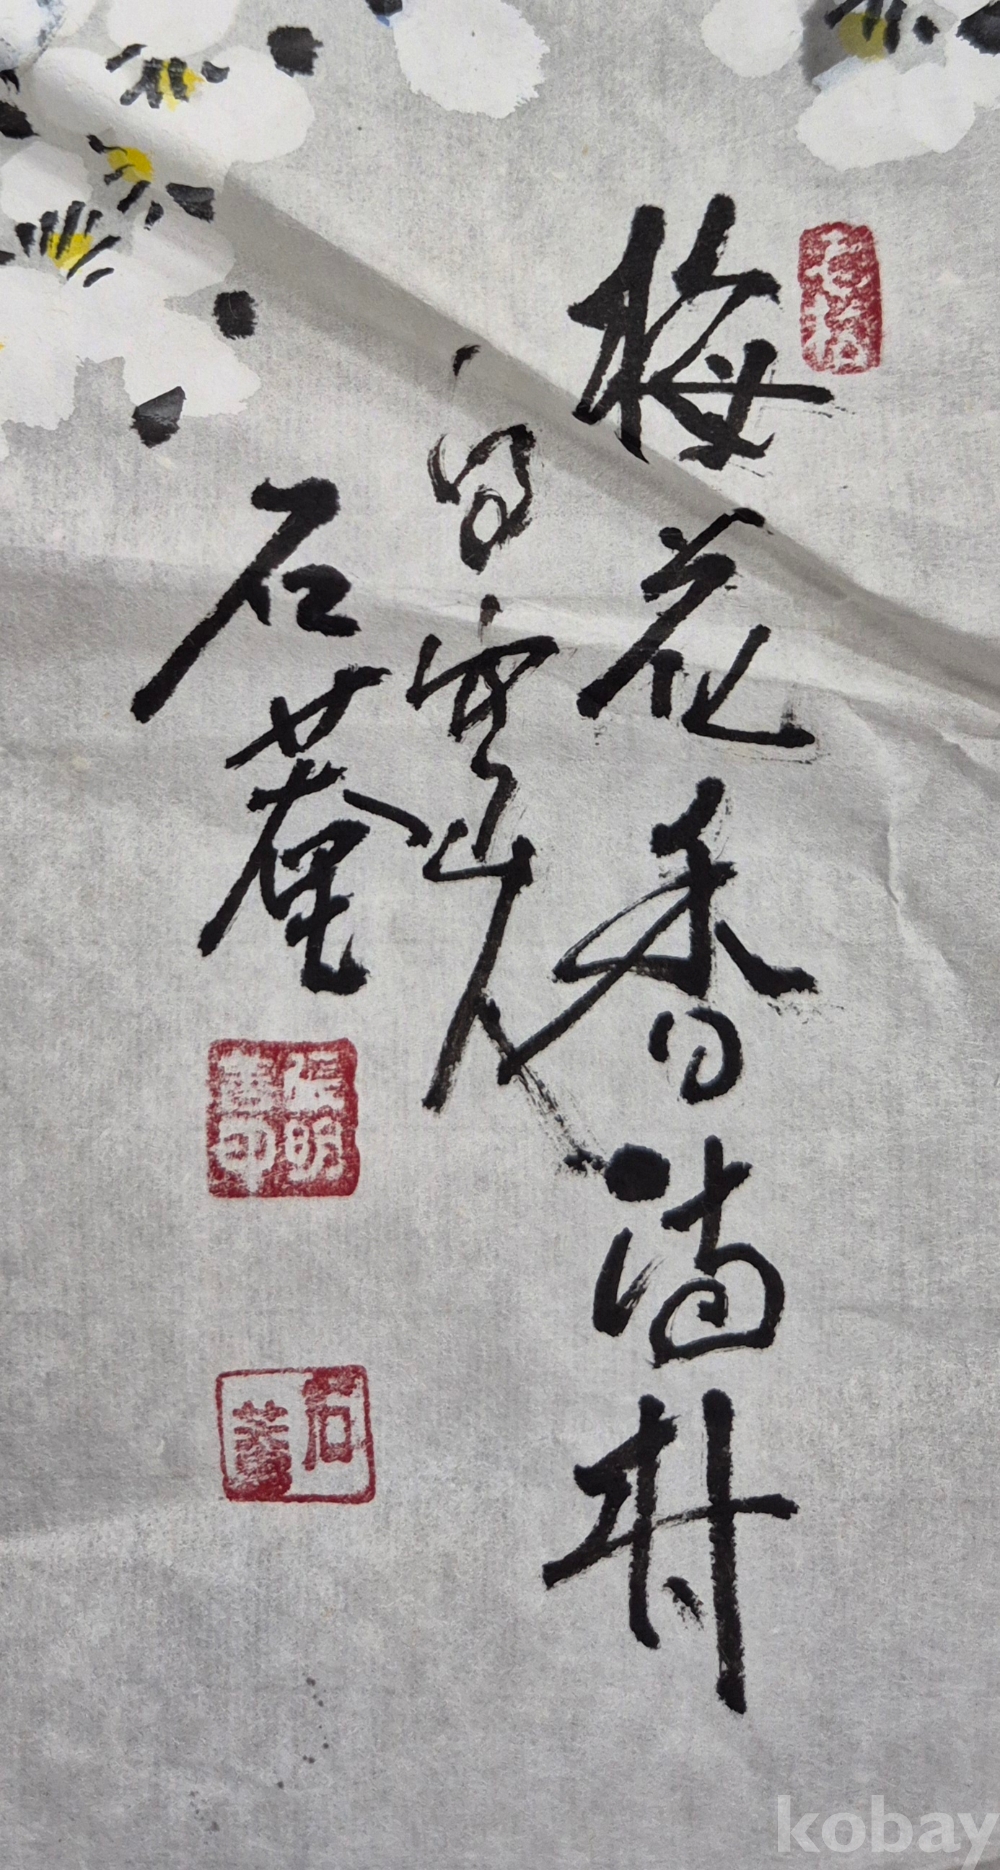 梅花香滿村
白雲山人
石菴
石菴
kobay